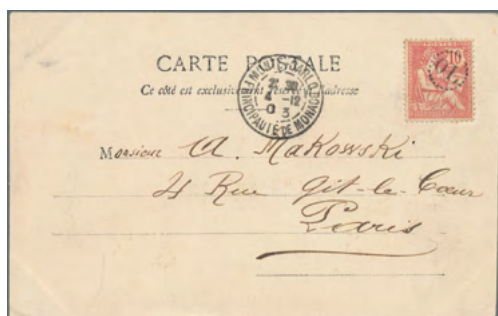 CARTE POSTALE
Ce côté est exclusivement réservé à l'adresse
PRINCIPAUTÉ DE MONACO
4 -12
10
Monsieur A. Makowski
4 Rue Git-le-Cœur
Paris